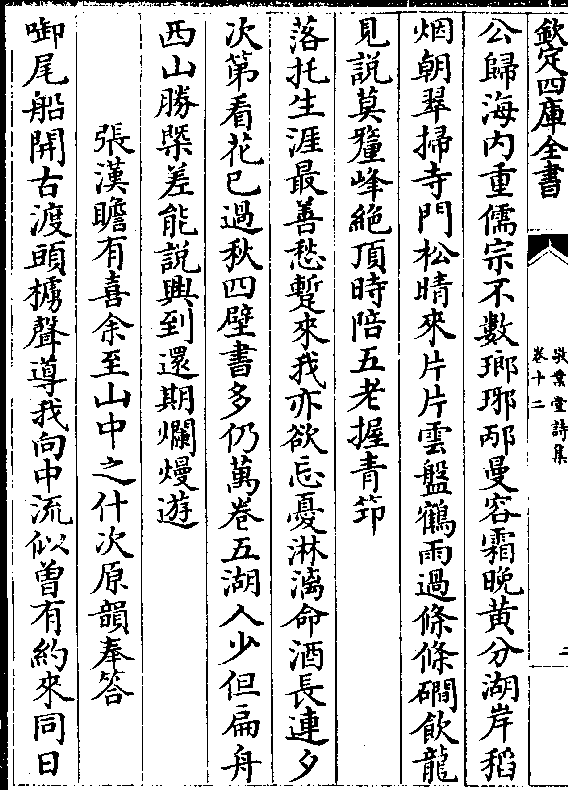 欽定四庫全書
敬業堂詩集
卷十二
二
公歸海内重儒宗不數瑯琊邴曼容霜晚黃分湖岸稻
烟朝翠掃寺門松晴來片片雲盤鶴雨過條條磵飲龍
見説莫釐峰絶頂時陪五老握青筇
落托生涯最善愁蹔來我亦欲忘憂淋漓命酒長連夕
次第看花已過秋四壁書多仍萬卷五湖人少但扁舟
西山勝槩差能說興到還期爛熳遊
張漢瞻有喜余至山中之什次原韻奉答
啣尾船開古渡頭櫓聲導我向中流似曾有約來同日